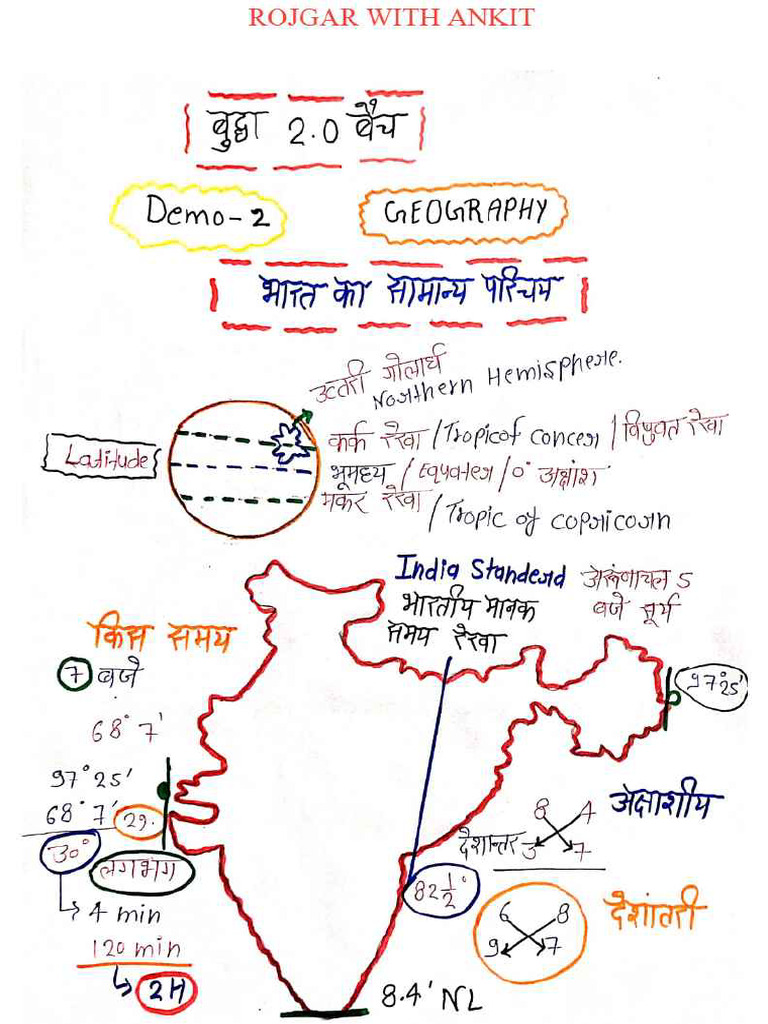 ROJGAR WITH ANKIT
बुद्धा 2.0 बैच
Demo-2
GEOGRAPHY
भारत का सामान्य परिचय
उत्तरी गोलार्ध
Northern Hemisphere.
Latitude
कर्क रेखा / Tropic of Concer / विषुवत रेखा
भूमध्य / Equater / 0° अक्षांश
मकर रेखा / Tropic of Copricorn
India Standerd
भारतीय मानक
समय रेखा
अरूणाचल 5
बजे सूर्य
किस समय
7 बजे
68° 7'
97° 25'
97° 25'
68° 7'
29.
30°
लगभग
4 min
120 min
2H
82 1/2°
8.4' NL
अक्षाशीय
8 4
देशान्तर 3 7
देशांतरी
6 8
9 7